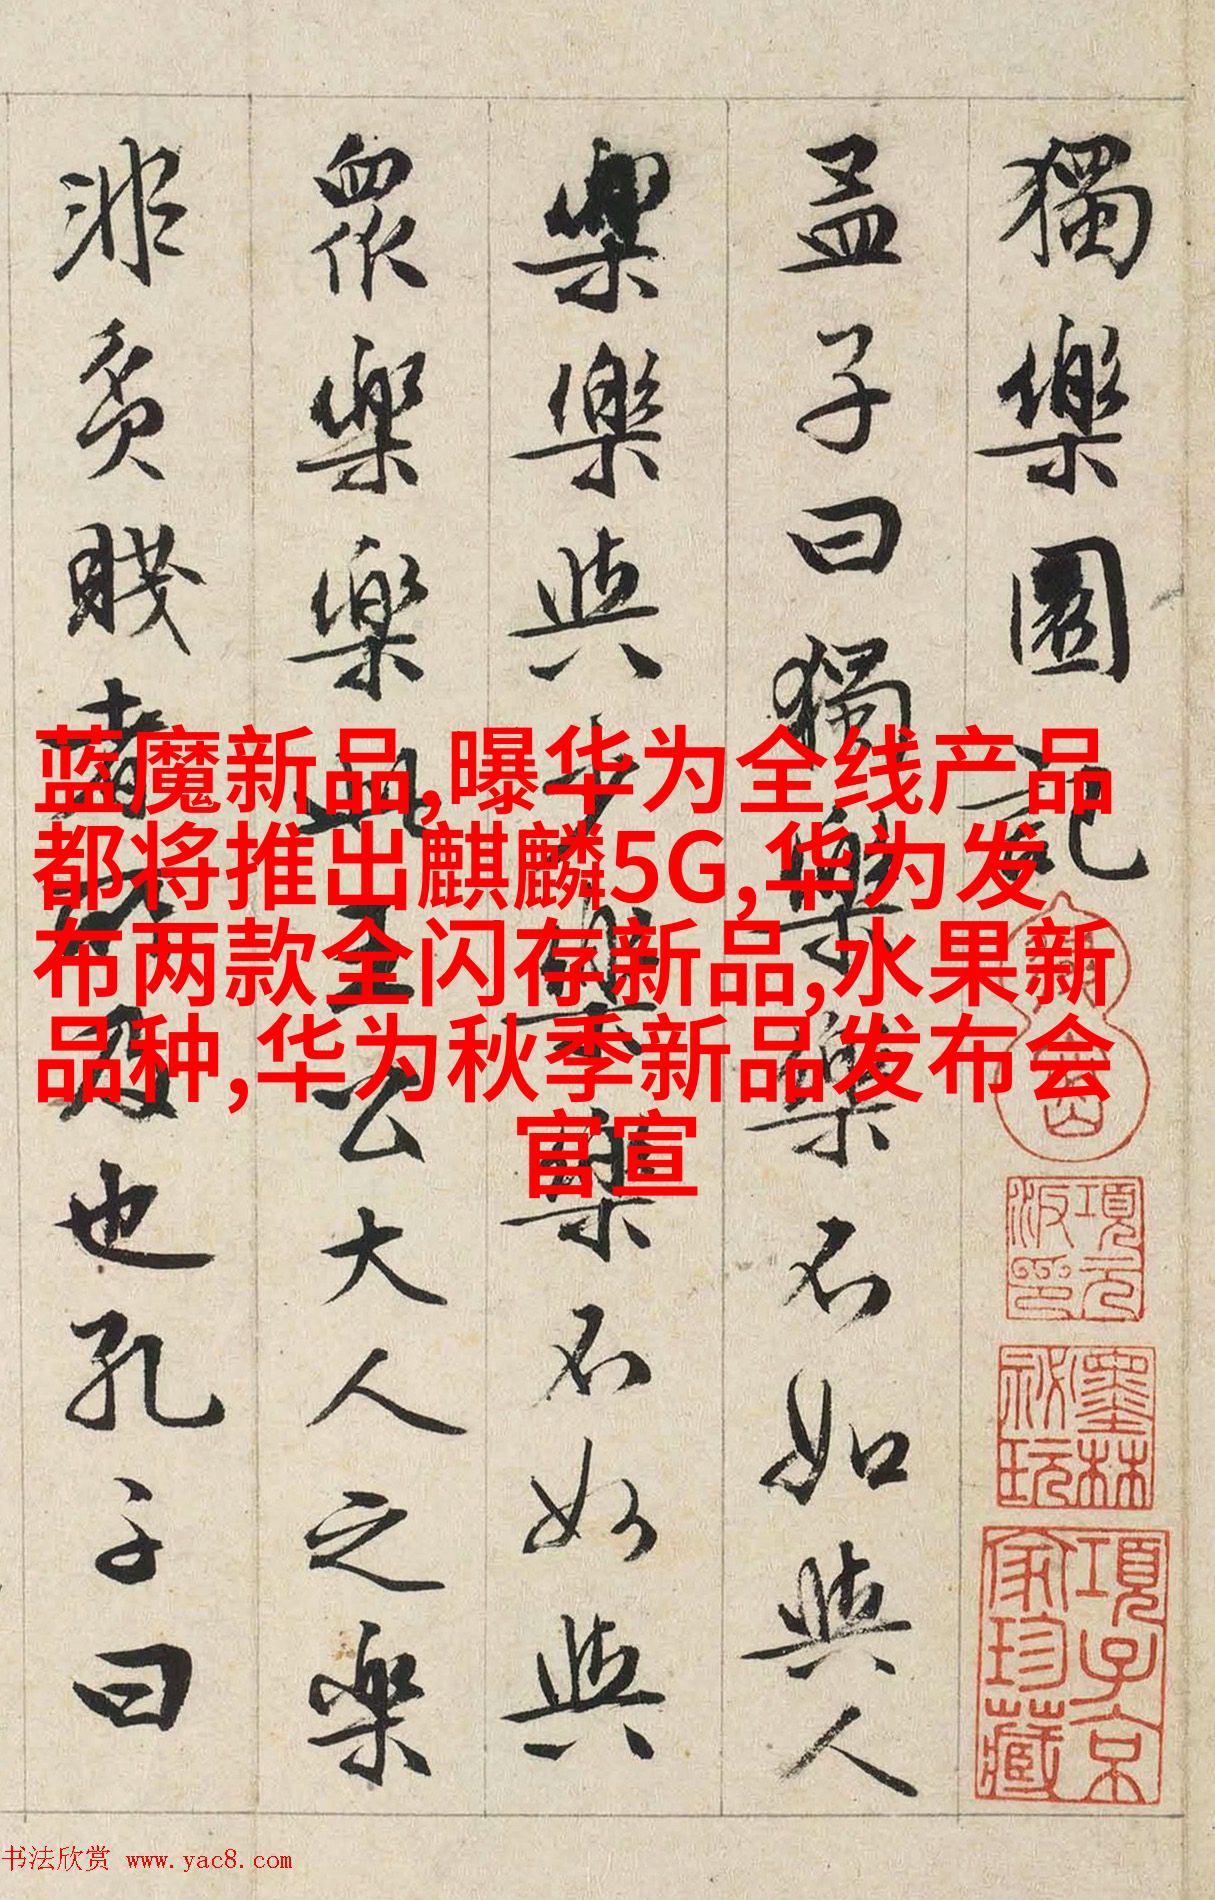 獨樂園記
孟子曰獨樂樂不如與人
樂樂與少樂樂不如與
眾樂樂此王公大人之樂
非貧賤者所及也孔子曰
蓝魔新品,曝华为全线产品
都将推出麒麟5G,华为发
布两款全闪存新品,水果新
品种,华为秋季新品发布会
官宣
項元
汴印
墨林
祕玩
項子京
家珍藏
书法欣赏 www.yac8.com